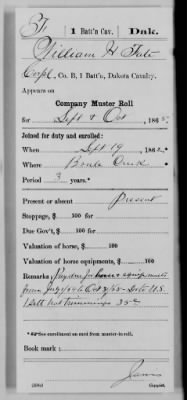 T 1 Batt'n Cav. Dak.
William H Tate
Corpl, Co. B, 1 Batt'n, Dakota Cavalry.
Appears on
Company Muster Roll
for Sept & Oct, 186
Joined for duty and enrolled:
When Sept 19, 186
Where Creek
Period 3 years.*
Present or absent Present
Stoppage, $ 100 for
Due Gov't, $ 100 for
Valuation of horse, $ 100
Valuation of horse equipments, $ 100
Remarks Pay due for horse & equipments
from to Oct 31/65 U.S.
1 Sett Hat Trimmings 35c
*See enrollment on card from muster-in roll.
Book mark:
Copyist.